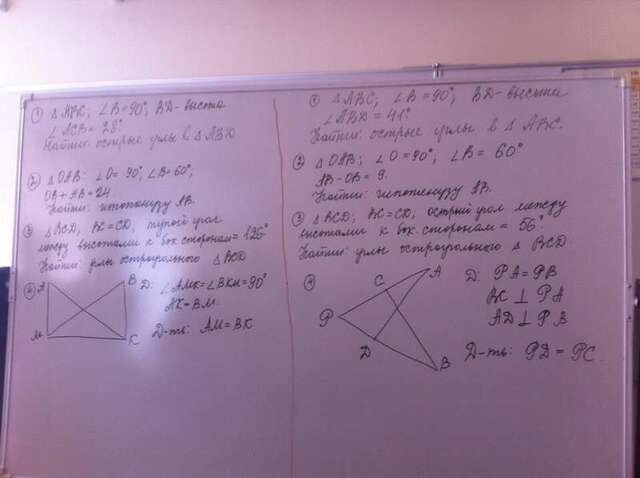 ① △ ABC; ∠B = 90°; BD - высота
∠ ACB = 28°
Найти: острые углы в △ ABD
② △ OAB: ∠O = 90°, ∠B = 60°,
OB + AB = 24
Найти: гипотенузу AB.
③ △ BCD, BC = CD, тупой угол
между высотами к бок. сторонам = 126°
Найти: углы остроугольного △ BCD
④
A
B
M
K
Д: ∠AMK = ∠BKM = 90°
AK = BM.
Д-ть: AM = BK
① △ ABC; ∠B = 90°, BD - высота
∠ ABD = 41°
Найти: острые углы в △ ABC.
② △ OAB; ∠O = 90°, ∠B = 60°
AB - OB = 9.
Найти: гипотенузу AB.
③ △ BCD, BC = CD, острый угол между
высотами к бок. сторонам = 56°.
Найти: углы остроугольного △ BCD
④
A
C
P
D
B
D: PA = PB
BC ⊥ PA
AD ⊥ PB
D-ть: PD = PC.